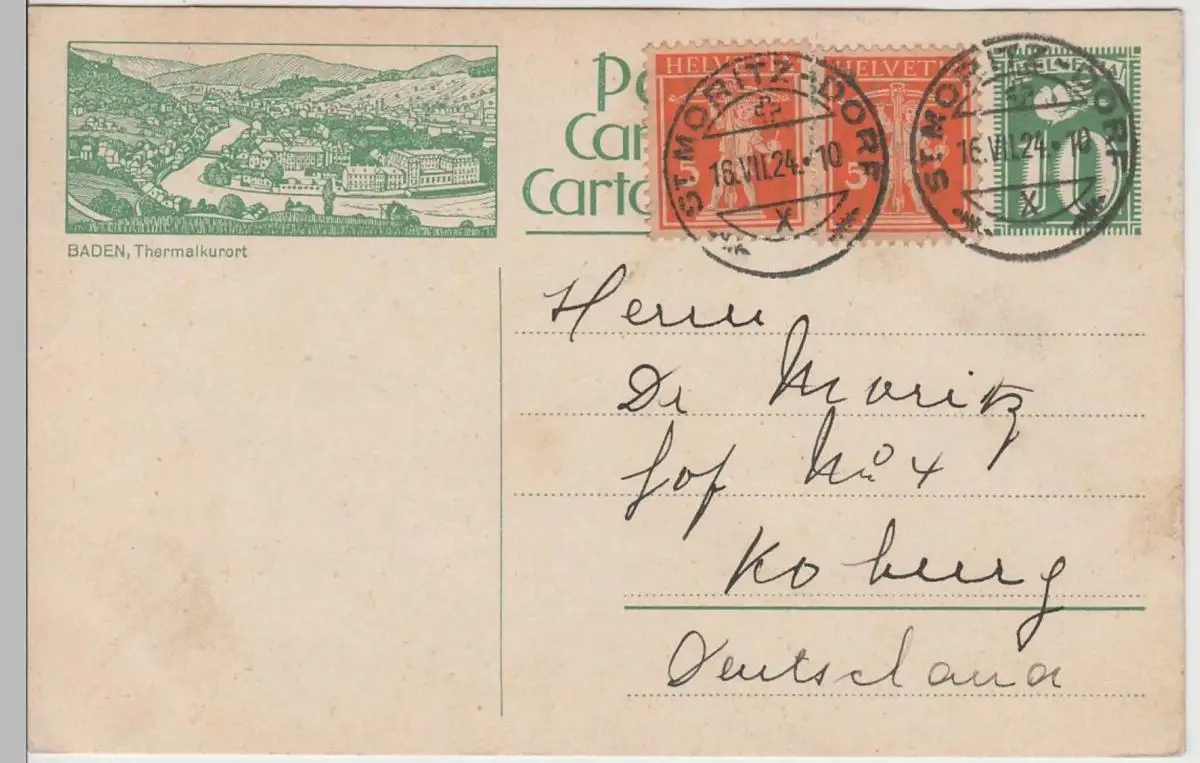 BADEN, Thermalkurort
Po
Car
Carto
HELVETIA
5
HELVETI
5
HELVETIA
10
ST. MORITZ-DORF
16.VII.24.•10
X
ST. MORITZ-DORF
16.VII.24.•10
X
Herrn
Dr Moritz
Koburg
Deutschland